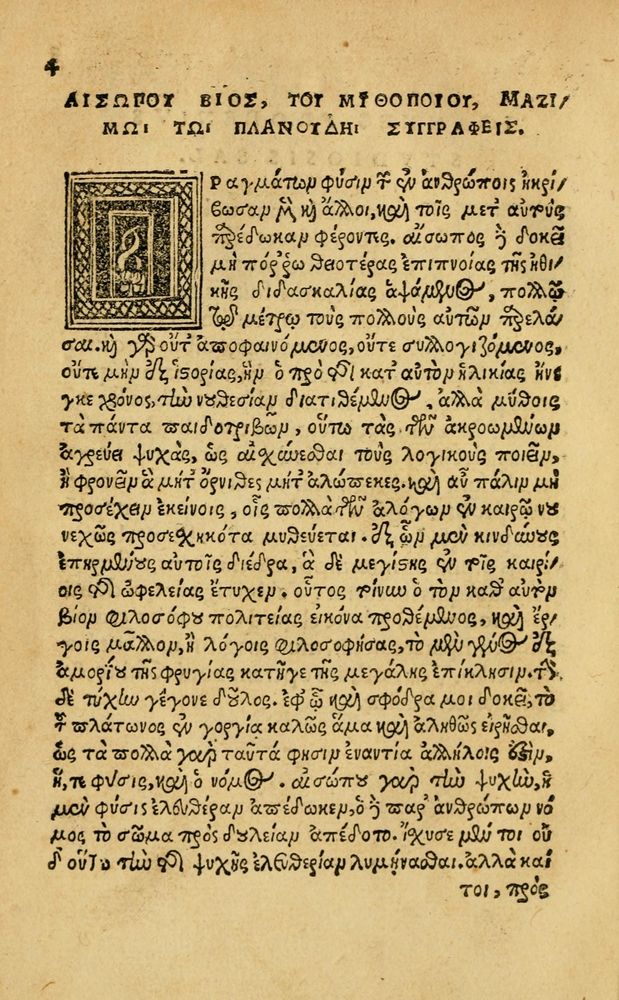 4
ΑΙΣΩΠΟΥ ΒΙΟΣ, ΤΟΥ ΜΥΘΟΠΟΙΟΥ, ΜΑΖΙ/
ΜΩΙ ΤΩΙ ΠΛΑΝΟΥΔΗΙ ΣΥΓΓΡΑΦΕΙΣ.
Πραγμάτων φύσιν τ ἐν ἀνθρώποις ἠκρί/
βωσαν μὲν κὴ ἄλλοι, καὶ τοῖς μετ αὐτοὺς
παρέδωκαν φέροντες. αἴσωπος δὲ δοκεῖ
μὴ πόρῥω θειοτέρας ἐπιπνοίας τῆς ἠθι/
κῆς διδασκαλίας ἁψάμενος, πολλῷ
τῷ μέτρῳ τοὺς πολλοὺς αὐτῶν παρελά/
σαι. κὴ γὰρ οὔτ ἀποφαινόμενος, οὔτε συλλογιζόμενος,
οὔτε μὴν ἐξ ἱστορίας, ἣν ὁ πρὸ τῆς κατ αὐτὸν ἡλικίας ἤνε
γκε χρόνος, τὴν νουθεσίαν διατιθέμενος, ἀλλὰ μύθοις
τὰ πάντα παιδοτριβῶν, οὕτω τὰς τῶν ἀκροωμένων
ἀγρεύει ψυχὰς, ὡς αἰσχύνεσθαι τοὺς λογικοὺς ποιεῖν,
ἢ φρονεῖν ἃ μήτ ὄρνιθες μήτ ἀλώπεκες. καὶ αὖ πάλιν μὴ
προσέχειν ἐκείνοις, οἷς πολλὰ τῶν ἀλόγων ἐν καιρῷ νου
νεχῶς προσεσχηκότα μυθεύεται. ἐξ ὧν μὲν κινδύνους
ἐπηρμένους αὐτοῖς διέδρα, ἃ δὲ μεγίστης ἐν τοῖς καιρί/
οις τῆς ὠφελείας ἔτυχεν. οὗτος τοίνυν ὁ τὸν καθ αὑτὸν
βίον φιλοσόφου πολιτείας εἰκόνα προθέμενος, καὶ ἔρ/
γοις μᾶλλον, ἢ λόγοις φιλοσοφήσας, τὸ μὲν γένος ἐξ
ἀμορίου τῆς φρυγίας κατῆγε τῆς μεγάλης ἐπίκλησιν. τὴν
δὲ τύχην γέγονε δοῦλος. ἐφ ᾧ καὶ σφόδρα μοι δοκεῖ, τὸ
τ πλάτωνος ἐν γοργίᾳ καλῶς ἅμα καὶ ἀληθῶς εἰρῆσθαι,
ὡς τὰ πολλὰ γὰρ ταῦτά φησιν ἐναντία ἀλλήλοις ἐστιν,
ἥ, τε φύσις, καὶ ὁ νόμος. αἰσώπου γὰρ τὴν ψυχὴν, ἡ
μὲν φύσις ἐλευθέραν ἀπέδωκεν, ὁ δὲ παρ ἀνθρώπων νό
μος τὸ σῶμα πρὸς δουλείαν ἀπέδοτο. ἴσχυσε μέν τοι οὐ
δ οὕτω τὴν τῆς ψυχῆς ἐλευθερίαν λυμήνασθαι. ἀλλὰ καί
τοι, πρὸς